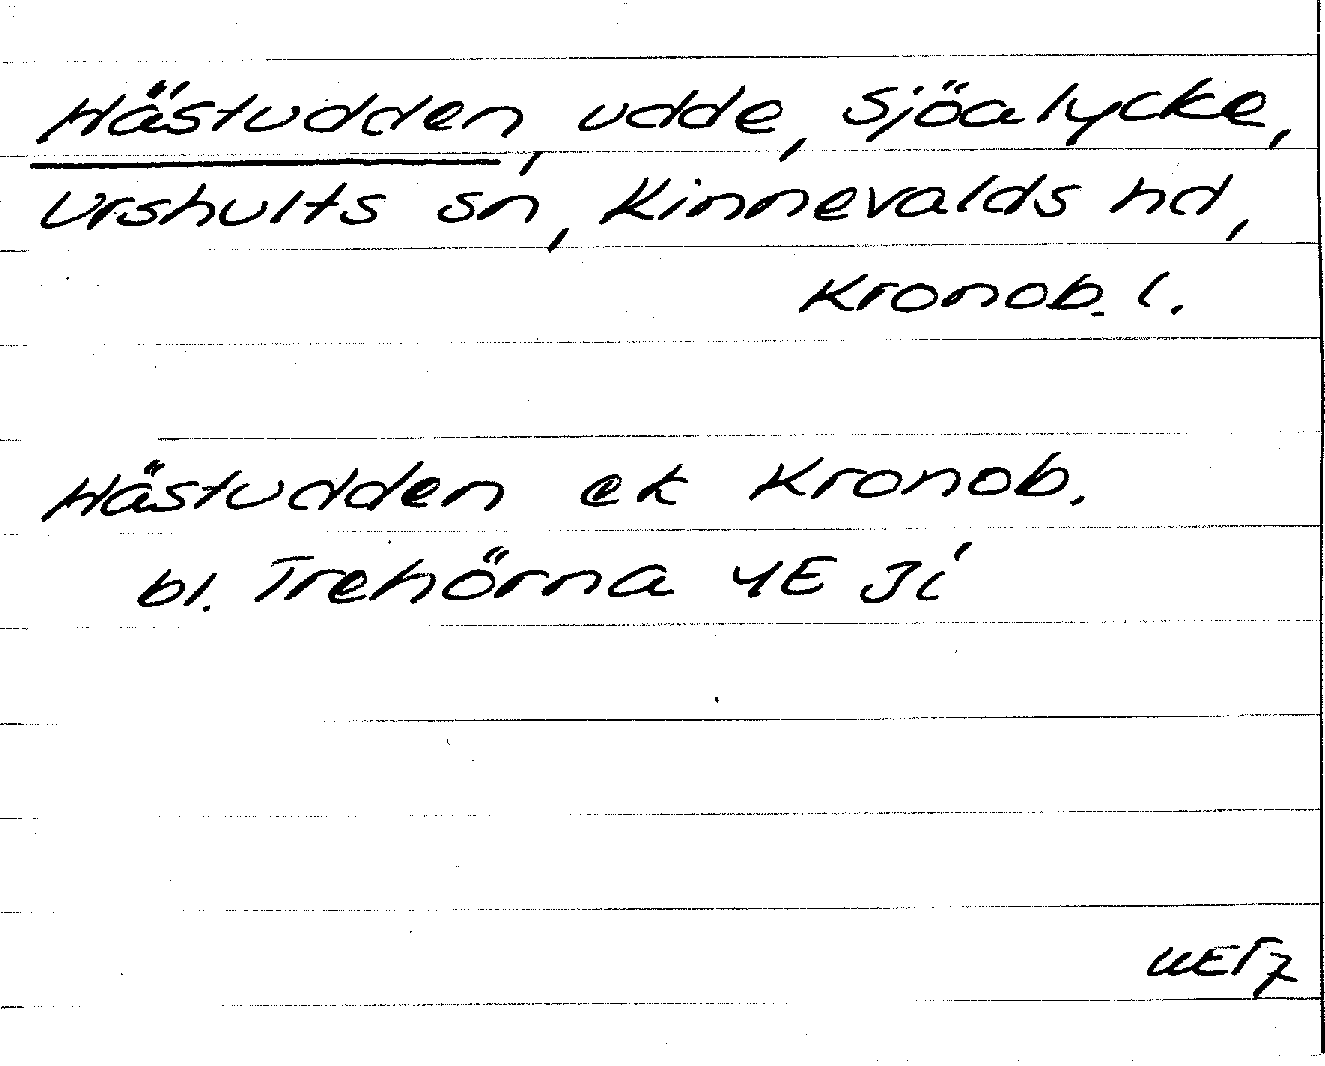 Hästudden, udde, Sjöalycke,
Urshults sn, Kinnevalds hd,
Kronob. l.
Hästudden ek Kronob.
bl. Trehörna 4E Ji